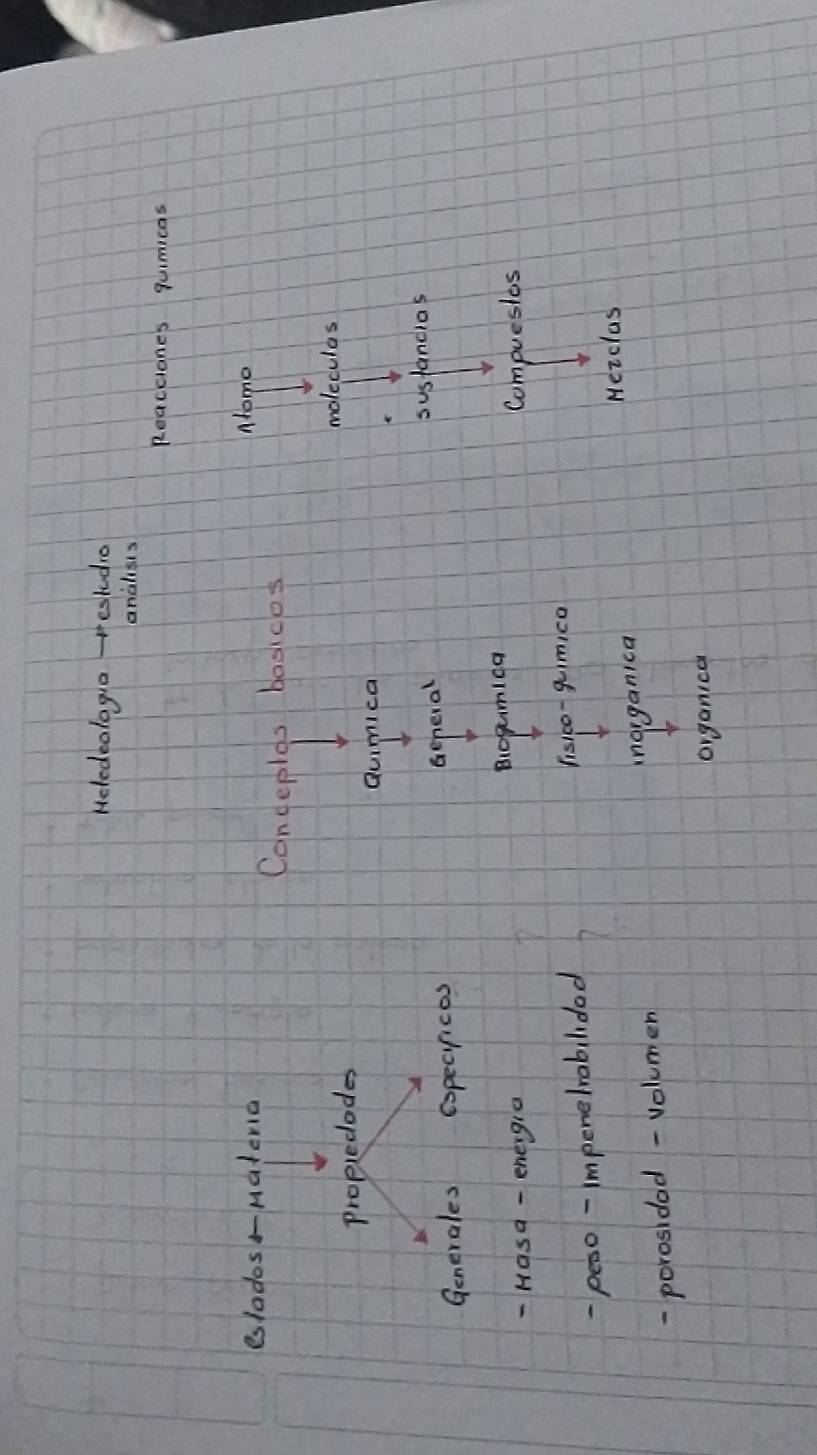 Metedología → estudio
análisis
Reacciones químicas
Conceptos basicos
Química
General
Bioquímica
físico-química
inorganica
organica
estados ← Materia
Propiedades
Generales especificos
- Masa - energia
- peso - impenetrabilidad
- porosidad - volumen
Atomo
moleculas
sustancias
Compuestos
Mezclas